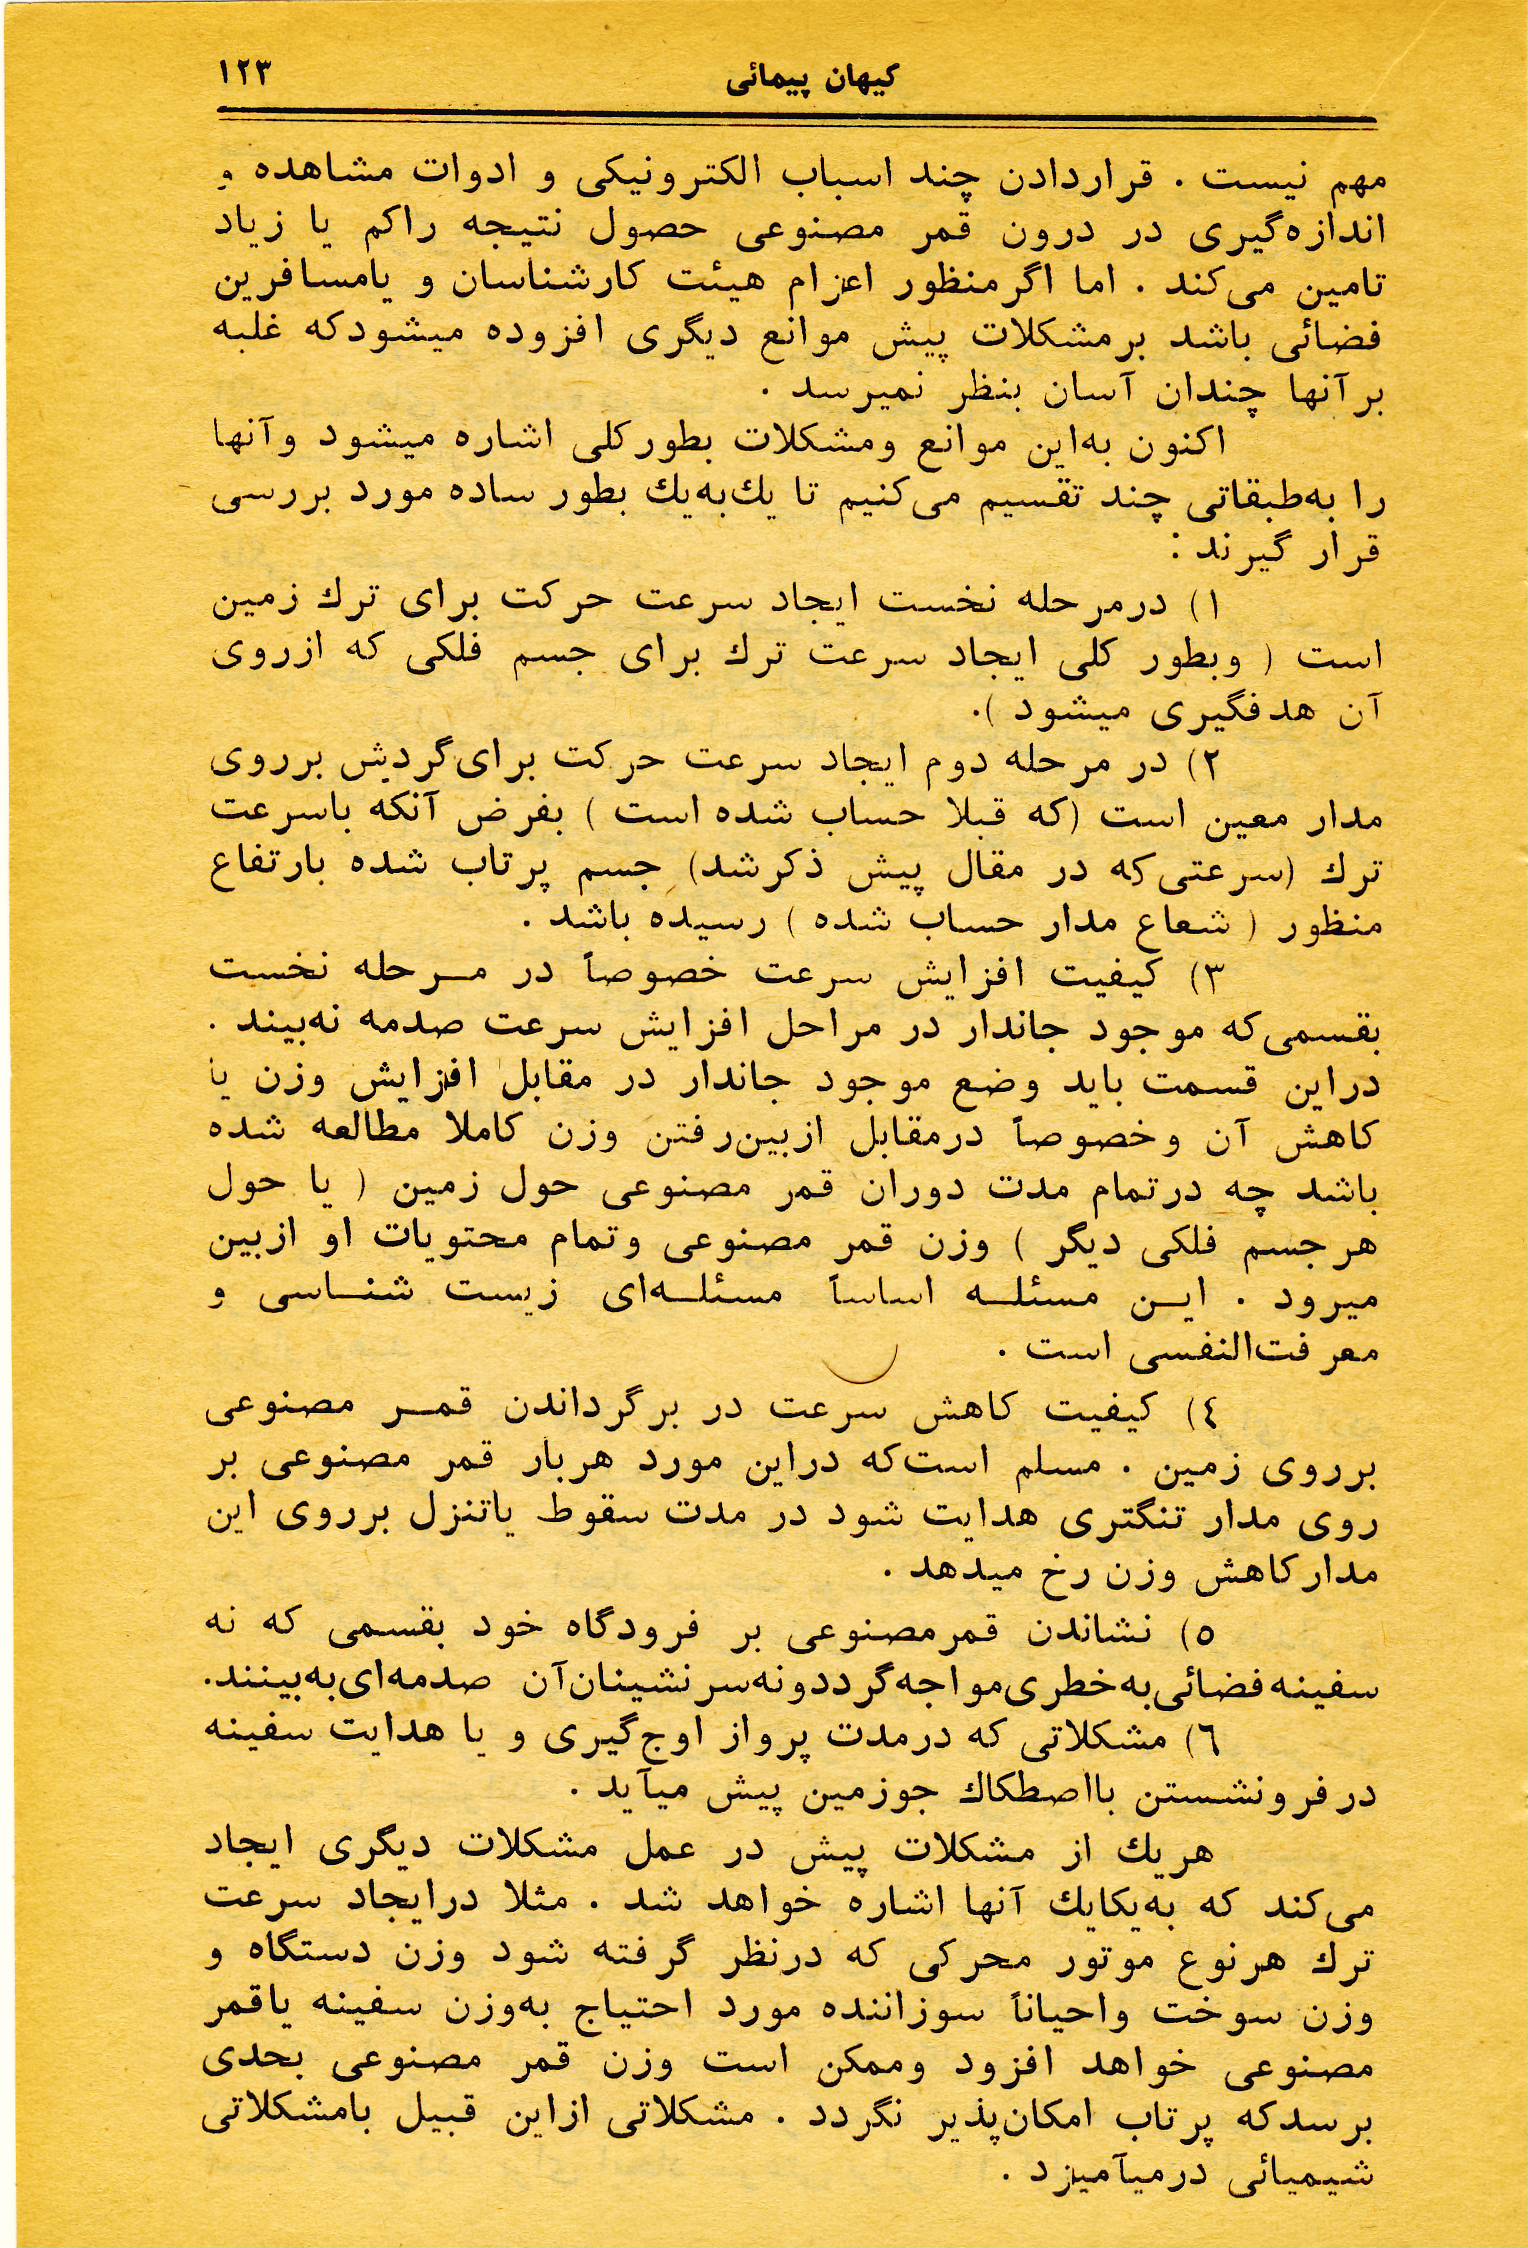 کیهان پیمائی
۱۲۳
مهم نیست . قراردادن چند اسباب الکترونیکی و ادوات مشاهده و
اندازه‌گیری در درون قمر مصنوعی حصول نتیجه راکم یا زیاد
تامین می‌کند . اما اگرمنظور اعزام هیئت کارشناسان و یامسافرین
فضائی باشد برمشکلات پیش موانع دیگری افزوده میشودکه غلبه
برآنها چندان آسان بنظر نمیرسد .
اکنون به‌این موانع ومشکلات بطورکلی اشاره میشود وآنها
را به‌طبقاتی چند تقسیم می‌کنیم تا یك‌به‌یك بطور ساده مورد بررسی
قرار گیرند :
۱) درمرحله نخست ایجاد سرعت حرکت برای ترك زمین
است ( وبطور کلی ایجاد سرعت ترك برای جسم فلکی که ازروی
آن هدفگیری میشود ).
۲) در مرحله دوم ایجاد سرعت حرکت برای‌گردش برروی
مدار معین است (که قبلا حساب شده است ) بفرض آنکه باسرعت
ترك (سرعتی‌که در مقال پیش ذکرشد) جسم پرتاب شده بارتفاع
منظور ( شعاع مدار حساب شده ) رسیده باشد .
۳) کیفیت افزایش سرعت خصوصاً در مـرحله نخست
بقسمی‌که موجود جاندار در مراحل افزایش سرعت صدمه نه‌بیند .
دراین قسمت باید وضع موجود جاندار در مقابل افزایش وزن یا
کاهش آن وخصوصاً درمقابل ازبین‌رفتن وزن کاملا مطالعه شده
باشد چه درتمام مدت دوران قمر مصنوعی حول زمین ( یا حول
هرجسم فلکی دیگر ) وزن قمر مصنوعی وتمام محتویات او ازبین
میرود . ایـن مسئلـه اساساً مسئلـه‌ای زیست شنـاسی و
معرفت‌النفسی است .
٤) کیفیت کاهش سرعت در برگرداندن قمـر مصنوعی
برروی زمین . مسلم است‌که دراین مورد هربار قمر مصنوعی بر
روی مدار تنگتری هدایت شود در مدت سقوط یاتنزل برروی این
مدارکاهش وزن رخ میدهد .
۵) نشاندن قمرمصنوعی بر فرودگاه خود بقسمی که نه
سفینه‌فضائی‌به‌خطری‌مواجه‌گرددونه‌سرنشینان‌آن صدمه‌ای‌به‌بینند.
٦) مشکلاتی که درمدت پرواز اوج‌گیری و یا هدایت سفینه
درفرونشستن بااصطکاك جوزمین پیش میآید .
هریك از مشکلات پیش در عمل مشکلات دیگری ایجاد
می‌کند که به‌یکایك آنها اشاره خواهد شد . مثلا درایجاد سرعت
ترك هرنوع موتور محرکی که درنظر گرفته شود وزن دستگاه و
وزن سوخت واحیاناً سوزاننده مورد احتیاج به‌وزن سفینه یاقمر
مصنوعی خواهد افزود وممکن است وزن قمر مصنوعی بحدی
برسدکه پرتاب امکان‌پذیر نگردد . مشکلاتی ازاین قبیل بامشکلاتی
شیمیائی درمیآمیزد .